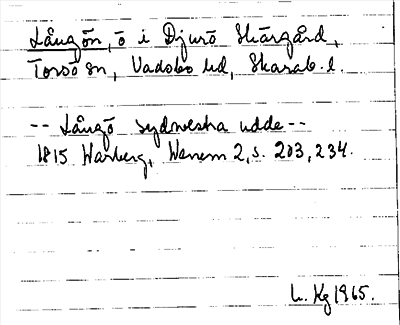 Långön, ö i Djurö Skärgård,
Torsö sn, Vadsbo hd, Skarab. l.
-- Långö sydvestra udde --
1815 Warberg, Wenern 2, s. 203, 234.
L. Kg 1965.